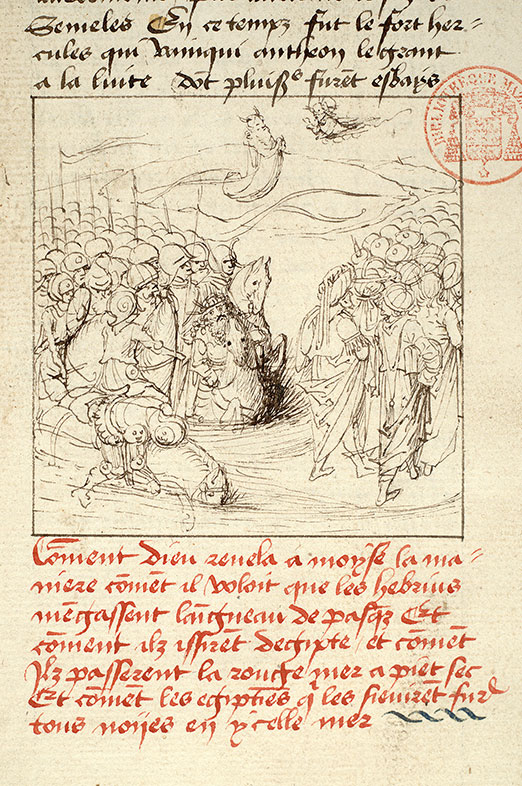 Semeles En ce tempz fut le fort her=
cules qui vainqui antheon le grant
a la luite dot pluisrs furēt esbays
BIBLIOTHEQUE
Cōment dieu reuela a moyse la ma=
niere cōmēt il voloit que les hebrius
mēgassent laigneau de pasqz Et
cōment ilz issirēt degipte et cōmēt
Ilz passerent la rouge mer a piet sec
Et cōmēt les egiptiēs q les sieuirēt furēt
tous noijes en ycelle mer